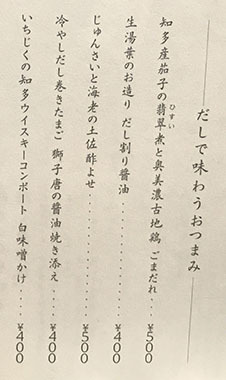 だしで味わうおつまみ
知多産茄子の翡翠煮と奥美濃古地鶏 ごまだれ……¥500
ひすい
生湯葉のお造り だし割り醤油……¥400
じゅんさいと海老の土佐酢よせ……¥500
冷やしだし巻きたまご 獅子唐の醤油焼き添え……¥400
いちじくの知多ウイスキーコンポート 白味噌かけ……¥400